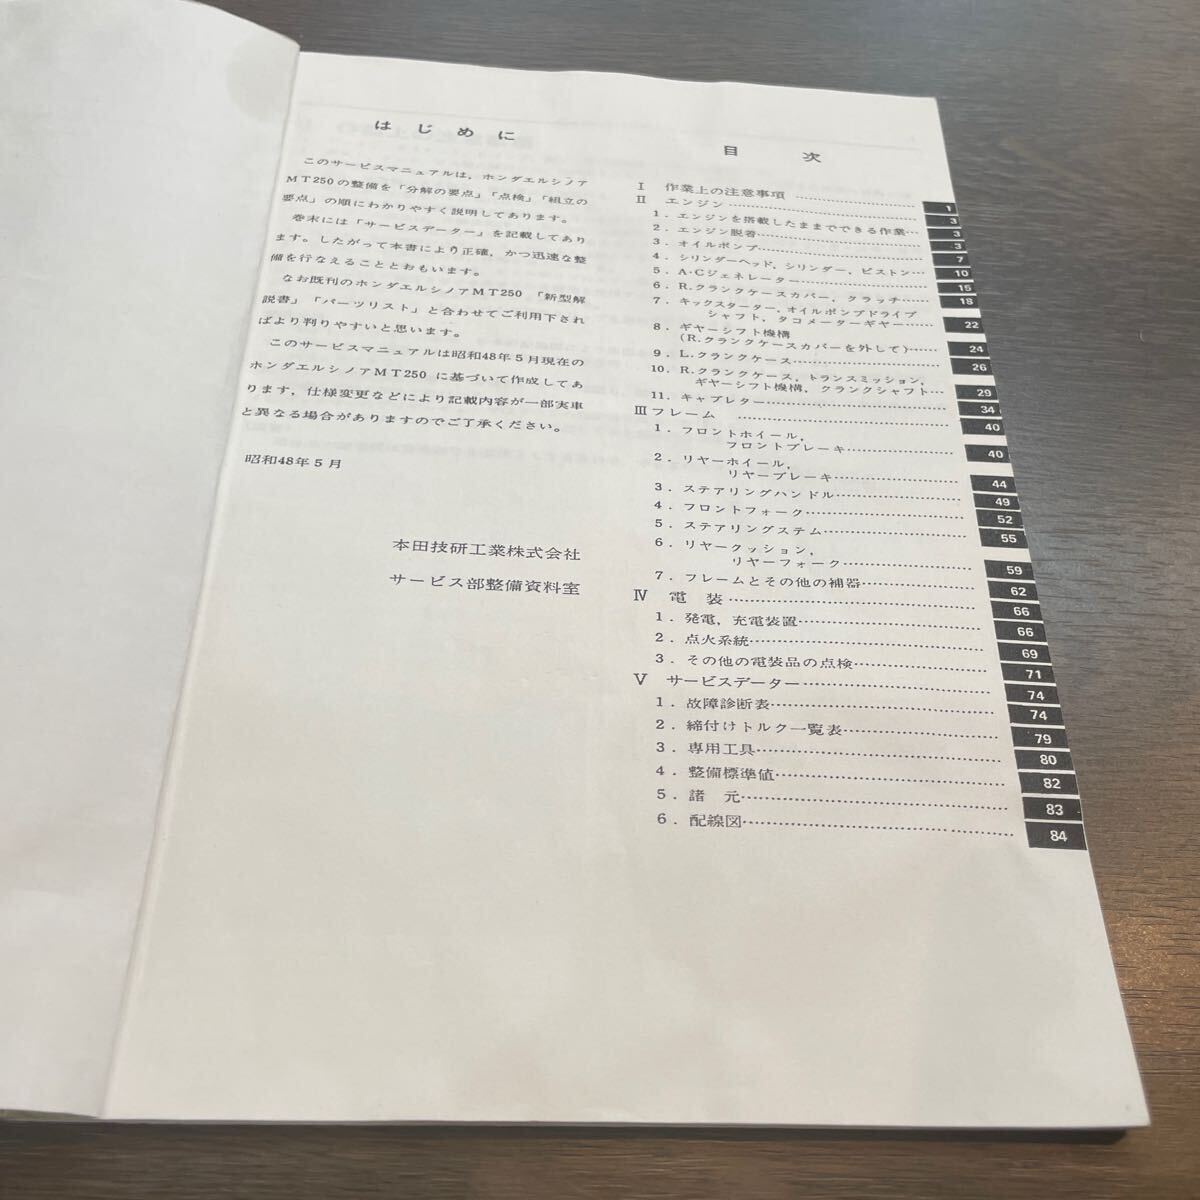 はじめに
このサービスマニュアルは，ホンダエルシノア
MT250の整備を「分解の要点」「点検」「組立の
要点」の順にわかりやすく説明してあります。
巻末には「サービスデーター」を記載してあり
ます。したがって本書により正確，かつ迅速な整
備を行なえることとおもいます。
なお既刊のホンダエルシノアMT250 「新型解
説書」「パーツリスト」と合わせてご利用下され
ばより判りやすいと思います。
このサービスマニュアルは昭和48年5月現在の
ホンダエルシノアMT250 に基づいて作成してあ
ります，仕様変更などにより記載内容が一部実車
と異なる場合がありますのでご了承ください。
昭和48年5月
本田技研工業株式会社
サービス部整備資料室
目次
Ⅰ 作業上の注意事項 …………… 1
Ⅱ エンジン …………… 3
1．エンジンを搭載したままでできる作業… 3
2．エンジン脱着…………… 3
3．オイルポンプ…………… 7
4．シリンダーヘッド，シリンダー，ピストン… 10
5．A・Cジェネレーター…………… 15
6．R.クランクケースカバー，クラッチ…… 18
7．キックスターター，オイルポンプドライブ
シャフト，タコメーターギヤー…… 22
8．ギヤーシフト機構
(R.クランクケースカバーを外して)…… 24
9．L.クランクケース…………… 26
10．R.クランクケース，トランスミッション，
ギヤーシフト機構，クランクシャフト… 29
11．キャブレター…………… 34
Ⅲ フレーム …………… 40
1．フロントホイール，
フロントブレーキ…………… 40
2．リヤーホイール，
リヤーブレーキ…………… 44
3．ステアリングハンドル…………… 49
4．フロントフォーク…………… 52
5．ステアリングステム…………… 55
6．リヤークッション，
リヤーフォーク…………… 59
7．フレームとその他の補器…………… 62
Ⅳ 電装 …………… 66
1．発電，充電装置…………… 66
2．点火系統…………… 69
3．その他の電装品の点検…………… 71
Ⅴ サービスデーター…………… 74
1．故障診断表…………… 74
2．締付けトルク一覧表…………… 79
3．専用工具…………… 80
4．整備標準値…………… 82
5．諸元…………… 83
6．配線図…………… 84